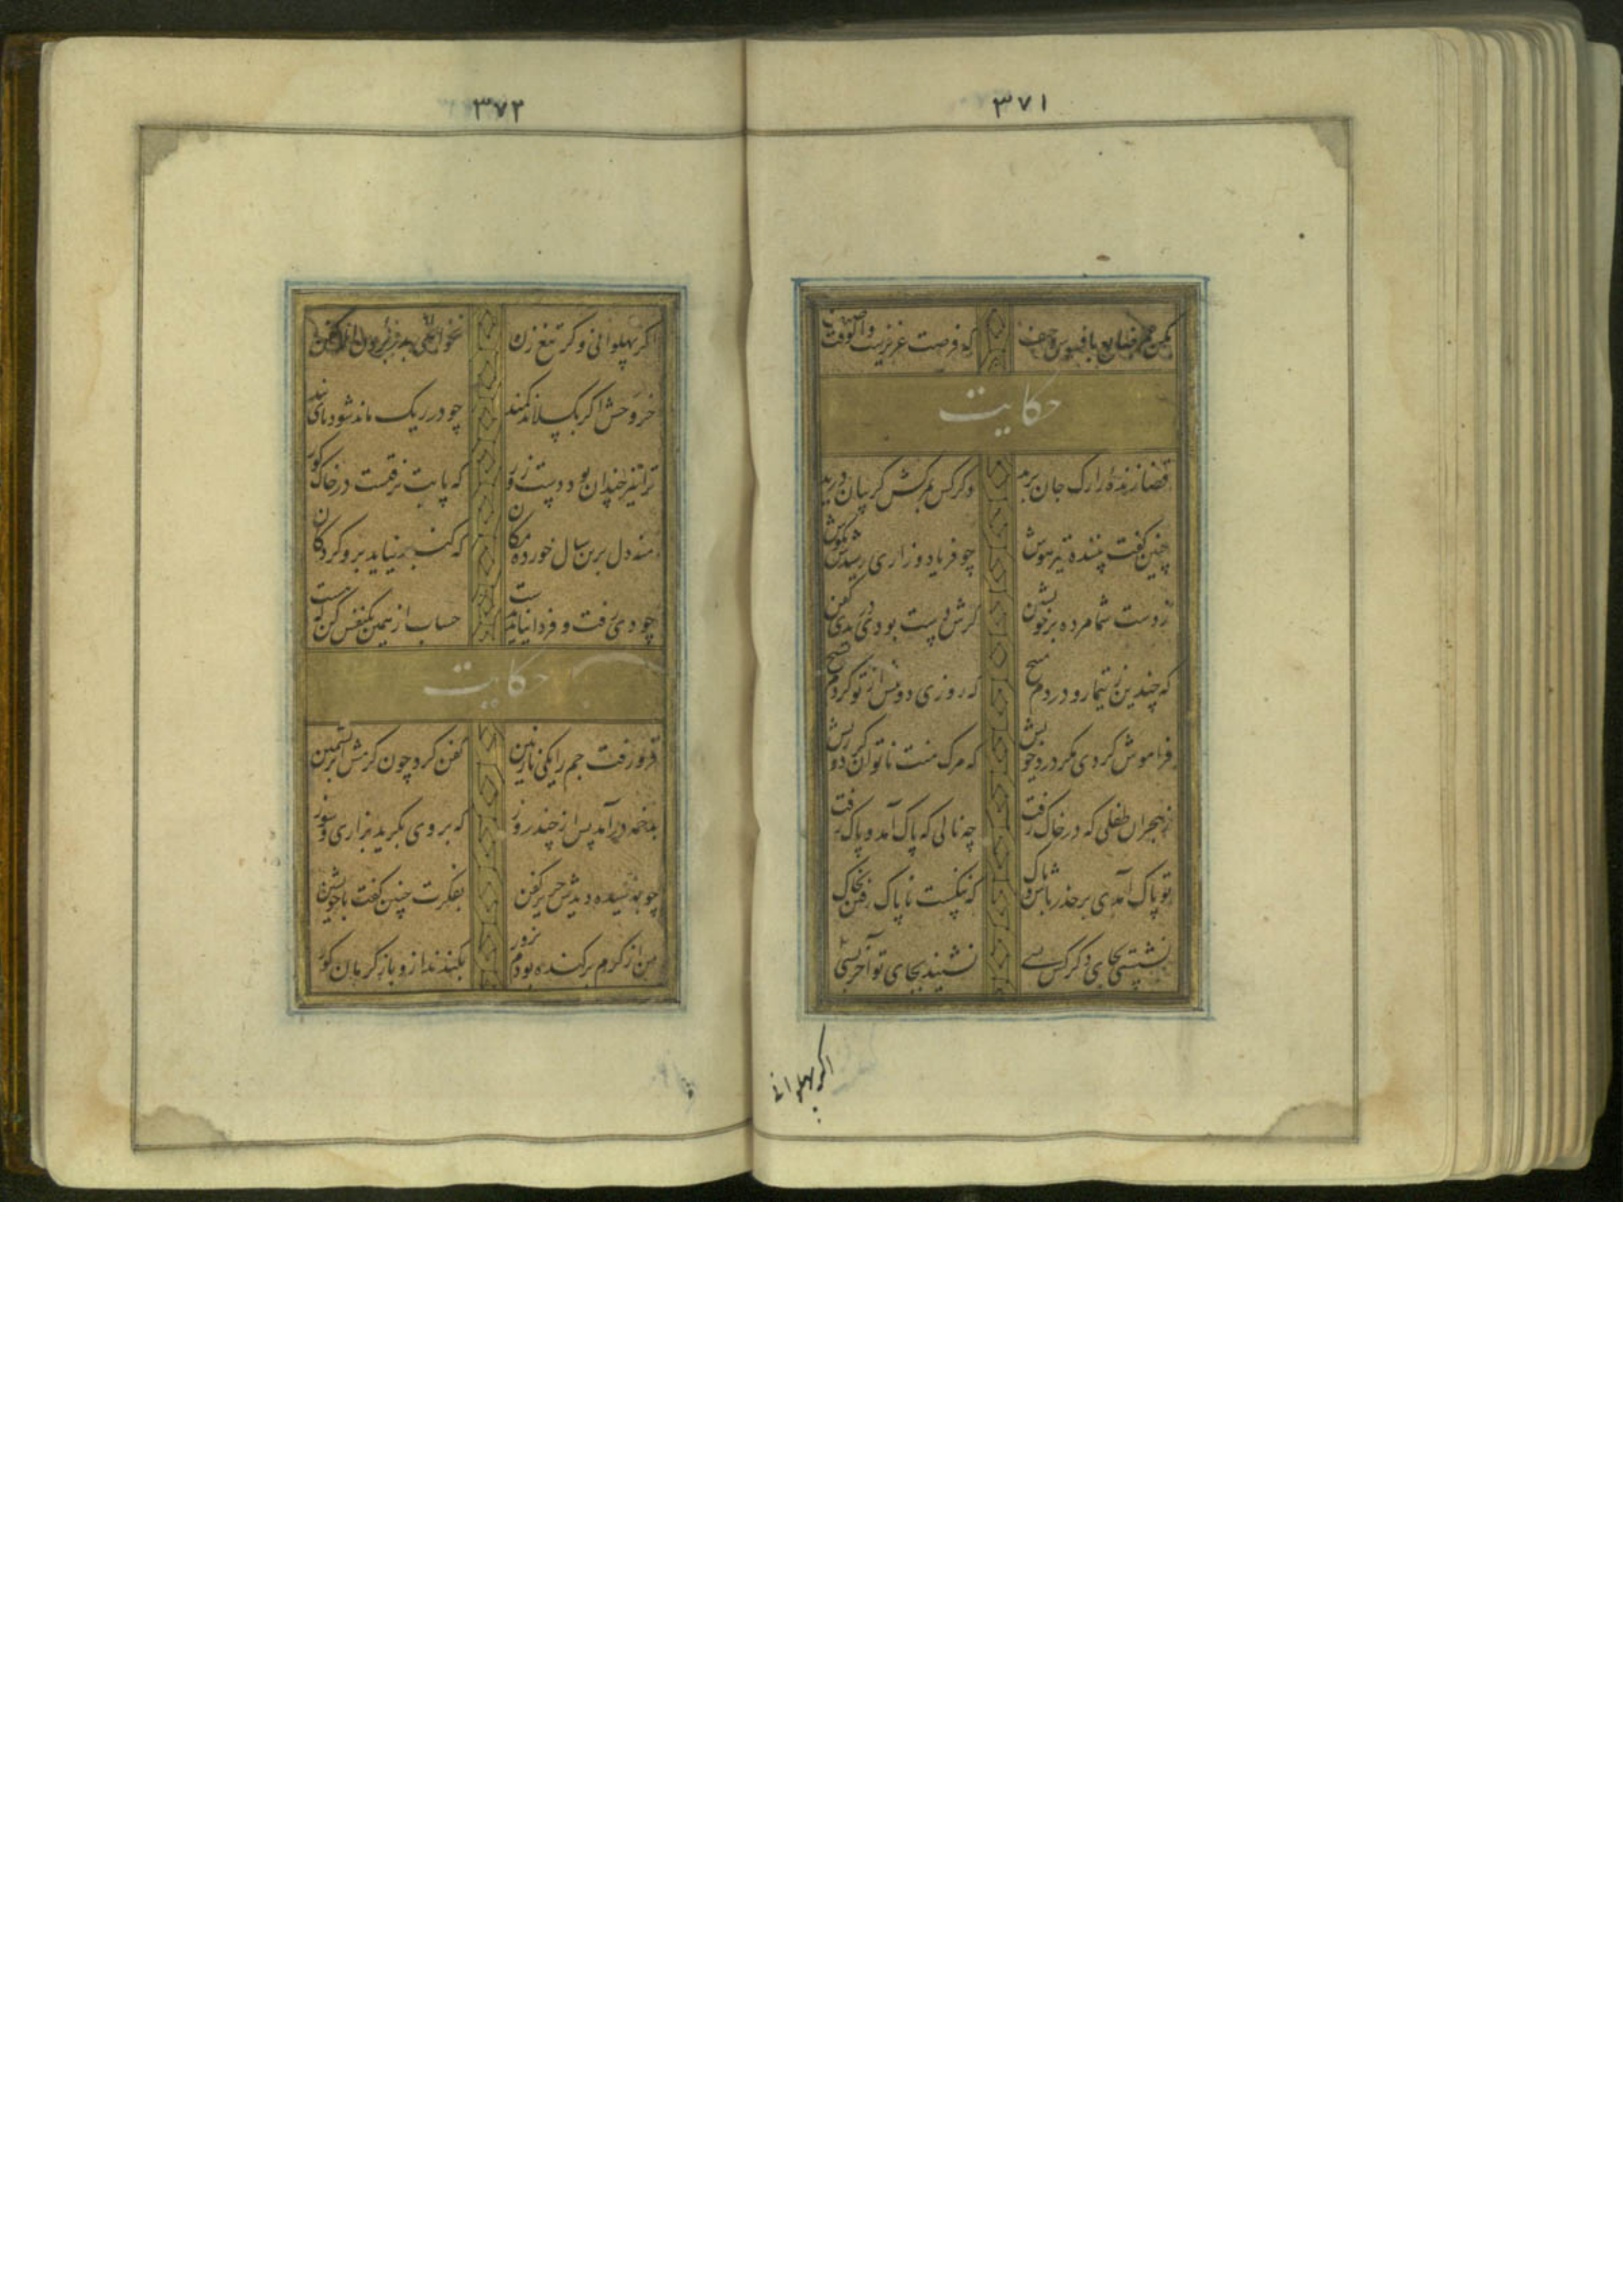 ٣٧١
مکن عمر ضایع بافسوس و حیف که فرصت عزیزست والوقت
حکایت
قضا زنده را رک جان برید دکر کس بمرکش کریبان درید
چنین کفت بیننده تیزهوش چو فریاد و زاری رسیدش بکوش
ز دست شما مرده برخویشتن کرش دست بودی دریدی کفن
که چندین ز تیمار و دردم مپیچ که روزی دو پیش از تو کردم بسیچ
فراموش کردی مکر مرک خویش که مرک منت ناتوان کرد و ریش
ز هجران طفلی که در خاک رفت چه نالی که پاک آمد و پاک رفت
تو پاک آمدی برحذر باش و پاک که ننکست ناپاک رفتن بخاک
نشستی بجای دکر کس بسی نشیند بجای تو آخر کسی
اکر پهلوانی
٣٧٢
اکر پهلوانی و کر تیغ زن نخواهی بدر بردن الا کفن
خر وحش اکر بکسلاند کمند چو در ریک ماند شود پای بند
ترا نیز چندان بود دست زور که پایت نرفتست در خاک کور
منه دل برین سال خورده مکان که کنبد نپاید برو کردکان
چو دی رفت و فردا نیاید بدست حساب از همین یکنفس کن که هست
حکایت
فرو رفت جم را یکی نازنین کفن کرد چون کرمش ابریشمین
بدخمه درآمد پس از چند روز که بر وی بکرید بزاری و سوز
چو پوسیده دیدش حریر کفن بفکرت چنین کفت با خویشتن
من از کرم برکنده بودم بزور بکندند ازو باز کرمان کور